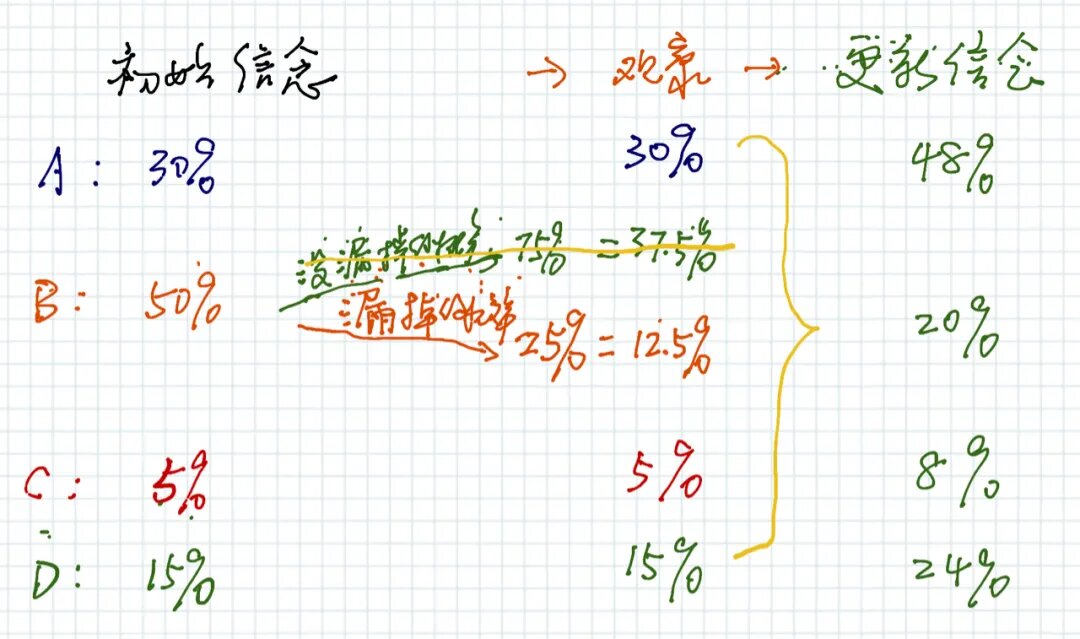 初始信念 → 观察 → 更新信念
A: 30% 30% 48%
没漏掉的概率 75% = 37.5%
B: 50% 20%
漏掉的概率 25% = 12.5%
C: 5% 5% 8%
D: 15% 15% 24%